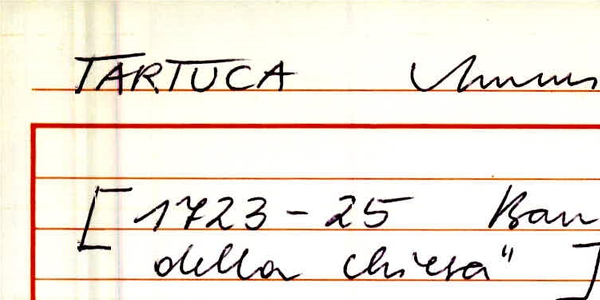 TARTUCA
[ 1723-25 Ban
della chiesa" ]